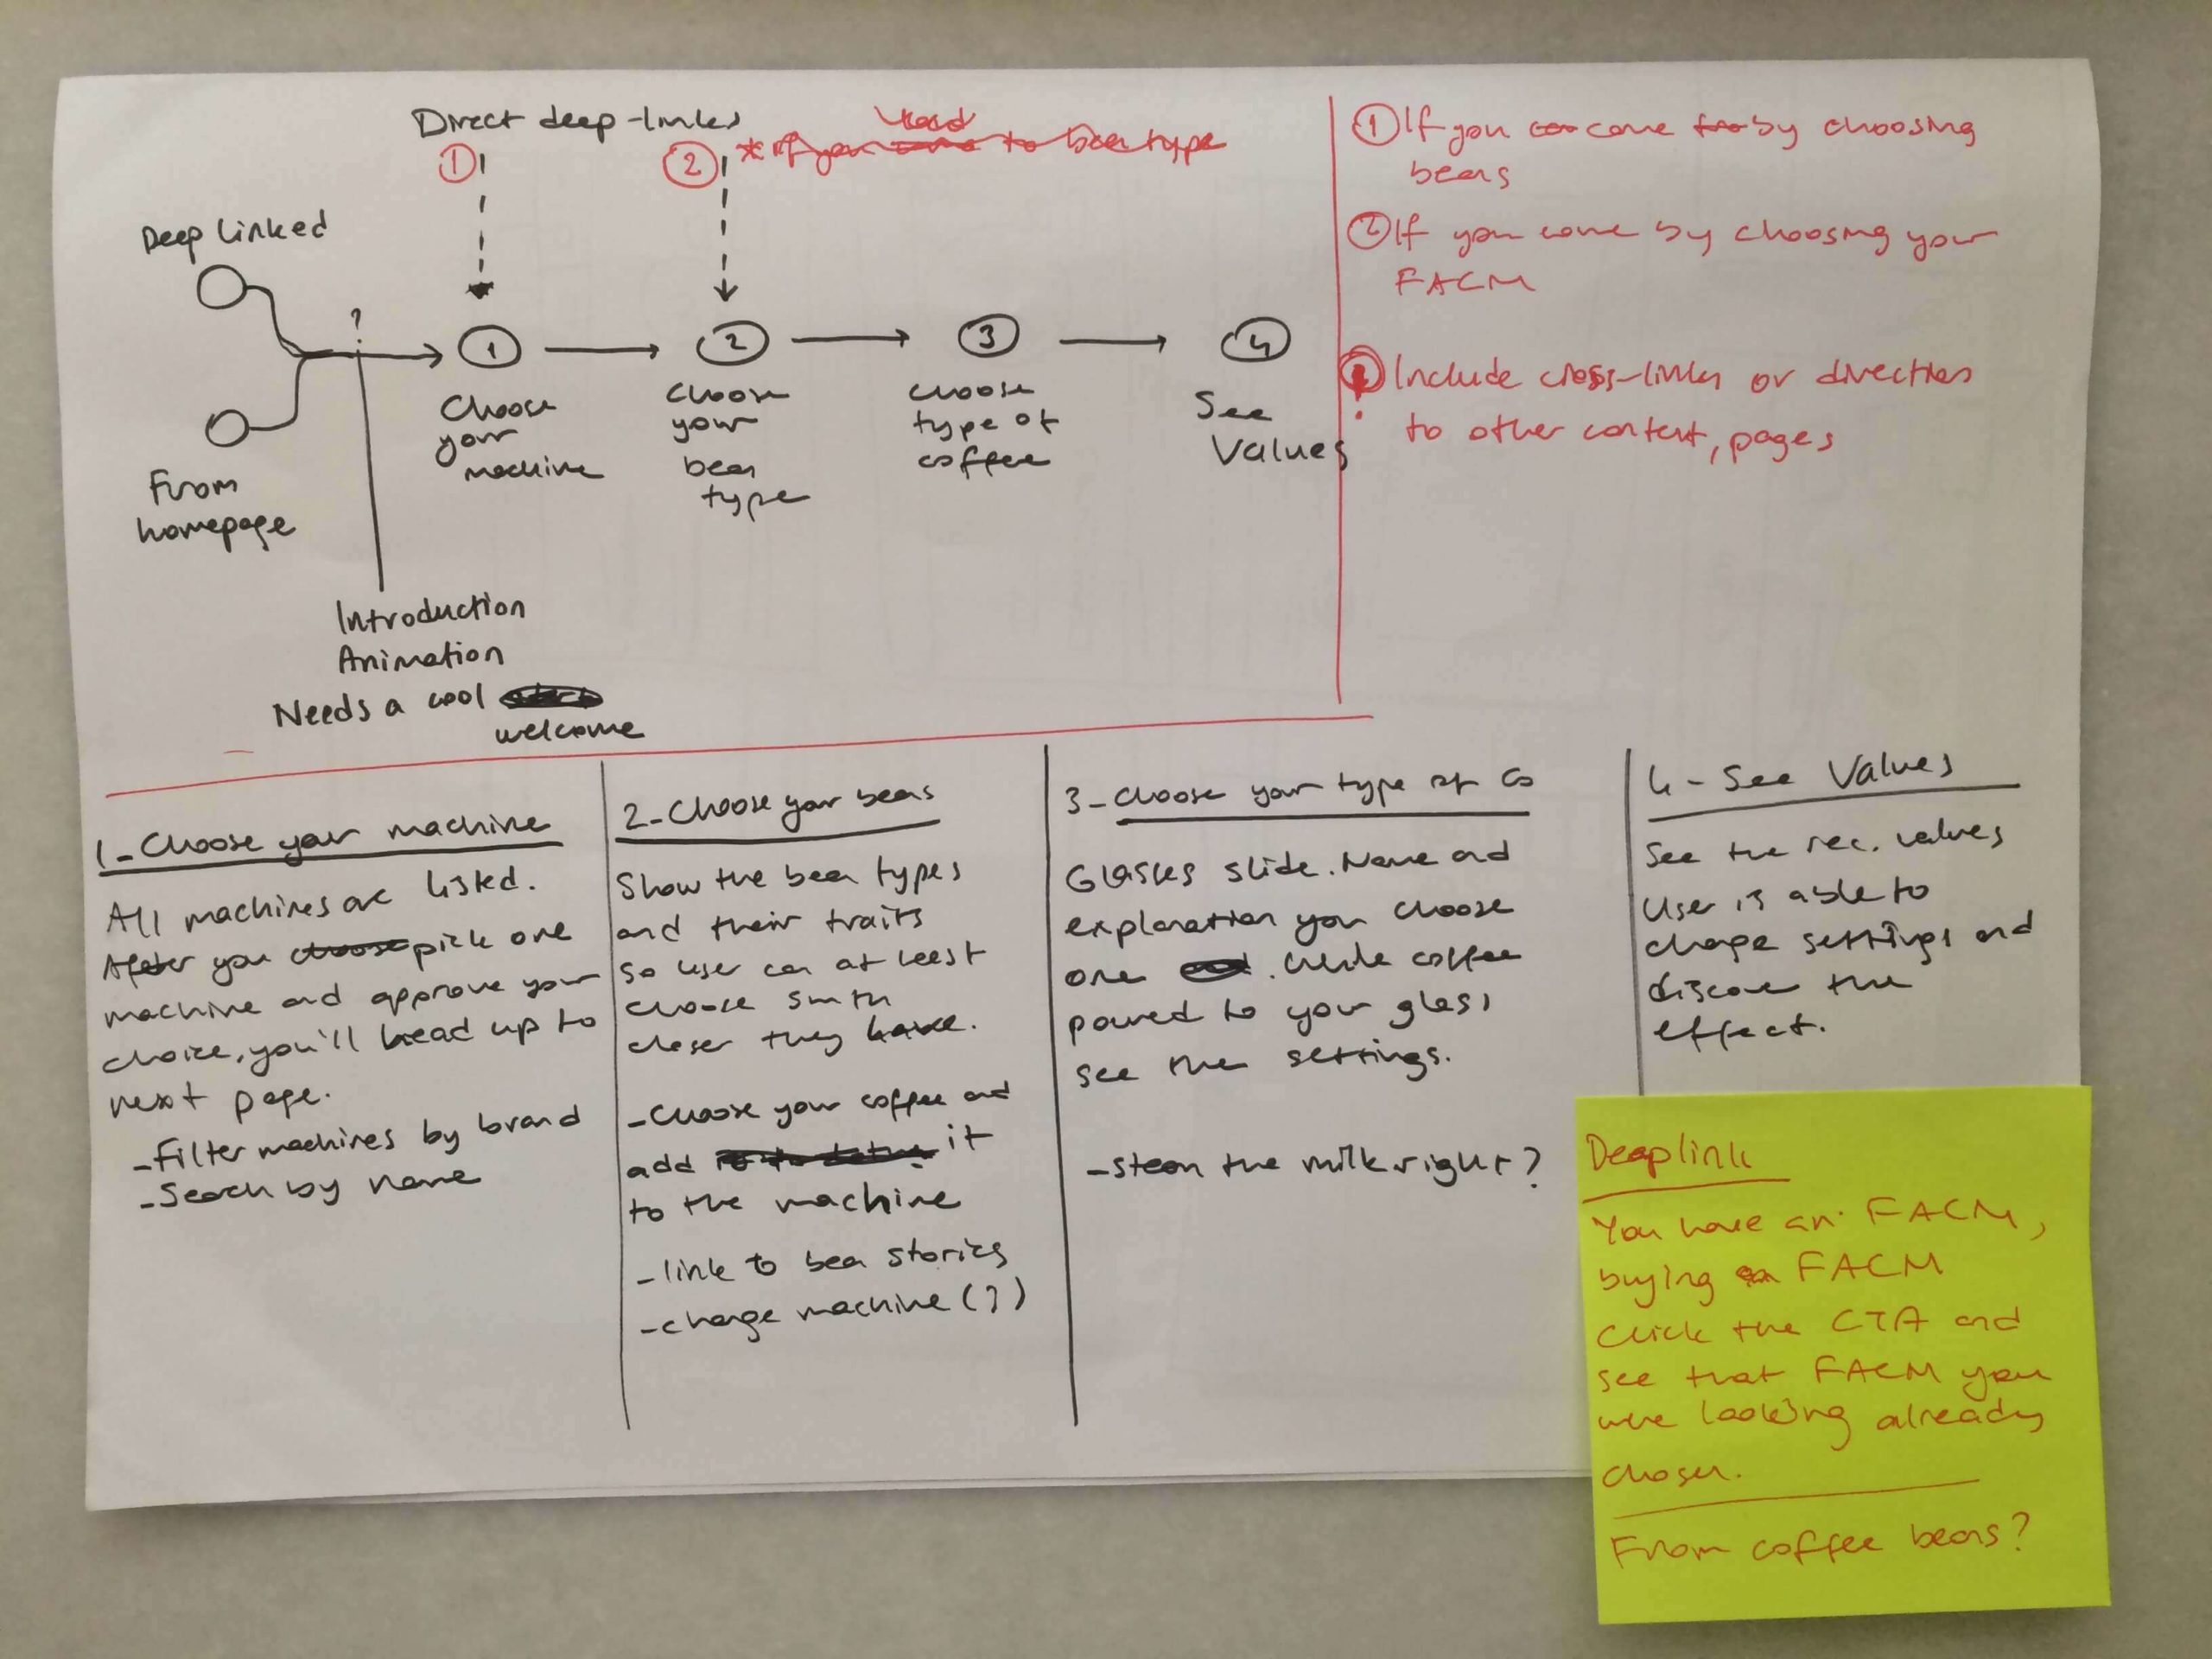 Direct deep-links
①
②
* If you head to bean type
Deep linked
?
1
2
3
4
Choose
your
machine
Choose
your
bean
type
choose
type of
coffee
See
Values
From
homepage
Introduction
Animation
Needs a cool
welcome
① If you come by choosing
beans
② If you come by choosing your
FACM
! Include cross-links or directions
to other content, pages
1 - Choose your machine
All machines are listed.
After you choose pick one
machine and approve your
choice, you'll head up to
next page.
- Filter machines by brand
- Search by name
2 - Choose your beans
Show the bean types
and their traits
so user can at least
choose smth
closer they have.
- Choose your coffee and
add it
to the machine
- link to bean stories
- change machine (?)
3 - Choose your type of Co
Glasses slide. Name and
explanation you choose
one . While coffee
poured to your glass
see the settings.
- steam the milk right?
4 - See Values
See the rec. values
User is able to
change settings and
discover the
effect.
Deeplink
You have an FACM,
buying FACM
Click the CTA and
see that FACM you
were looking already
chosen.
From coffee beans?